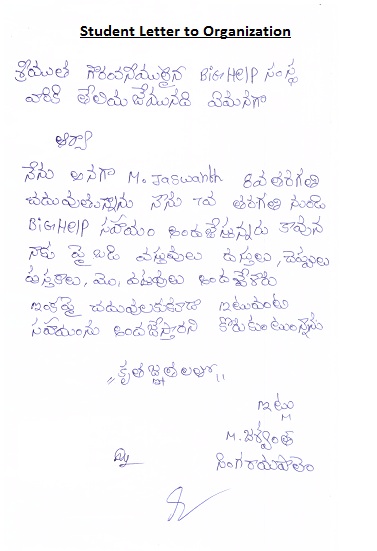 Student Letter to Organization
శ్రీయుత గౌరవనీయులైన BiGHELP సంస్థ
వారికి తెలియజేయునది ఏమనగా
ఆర్యా
నేను అనగా M. Jaswanth 8వ తరగతి
చదువుతున్నాను నాకు 7వ తరగతి నుండి
BiGHELP సహాయం అందజేస్తున్నారు కావున
నాకు పై బడి వస్తువులు దుస్తులు, చెప్పులు
పుస్తకాలు, మొ, వస్తువులు అందచేశారు
ఇంకపై చదువులకుకూడా ఇటువంటి
సహాయంను అందజేస్తారని కోరుకుంటున్నాను
,, కృతజ్ఞతలతో ,,
ఇటు
M. జశ్వంత్
By సింగరాయపాలెం